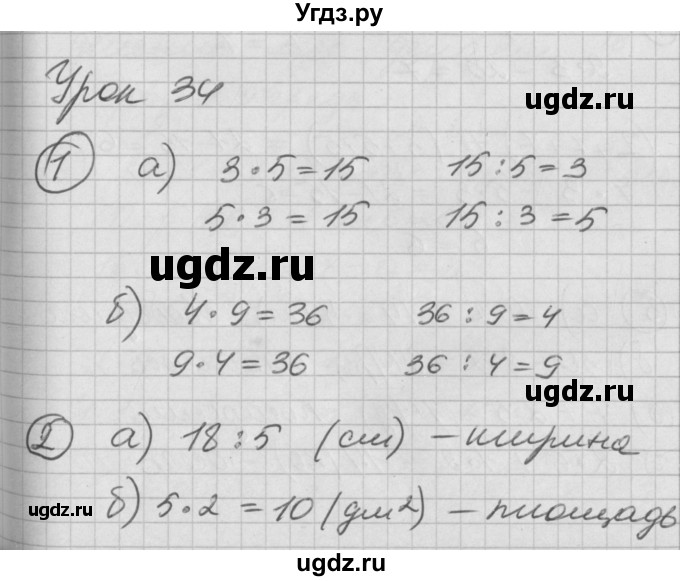 Угдз.ру
Урок 34
ugdz.ru
1 а) 3·5=15 15:5=3
5·3=15 15:3=5
ugdz.ru
ugdz.ru
б) 4·9=36 36:9=4
9·4=36 36:4=9
ugdz.ru
2 а) 18:5 (см) – ширина
ugdz.ru
б) 5·2=10 (дм²) – площадь
ugdz.ru
ugdz.ru